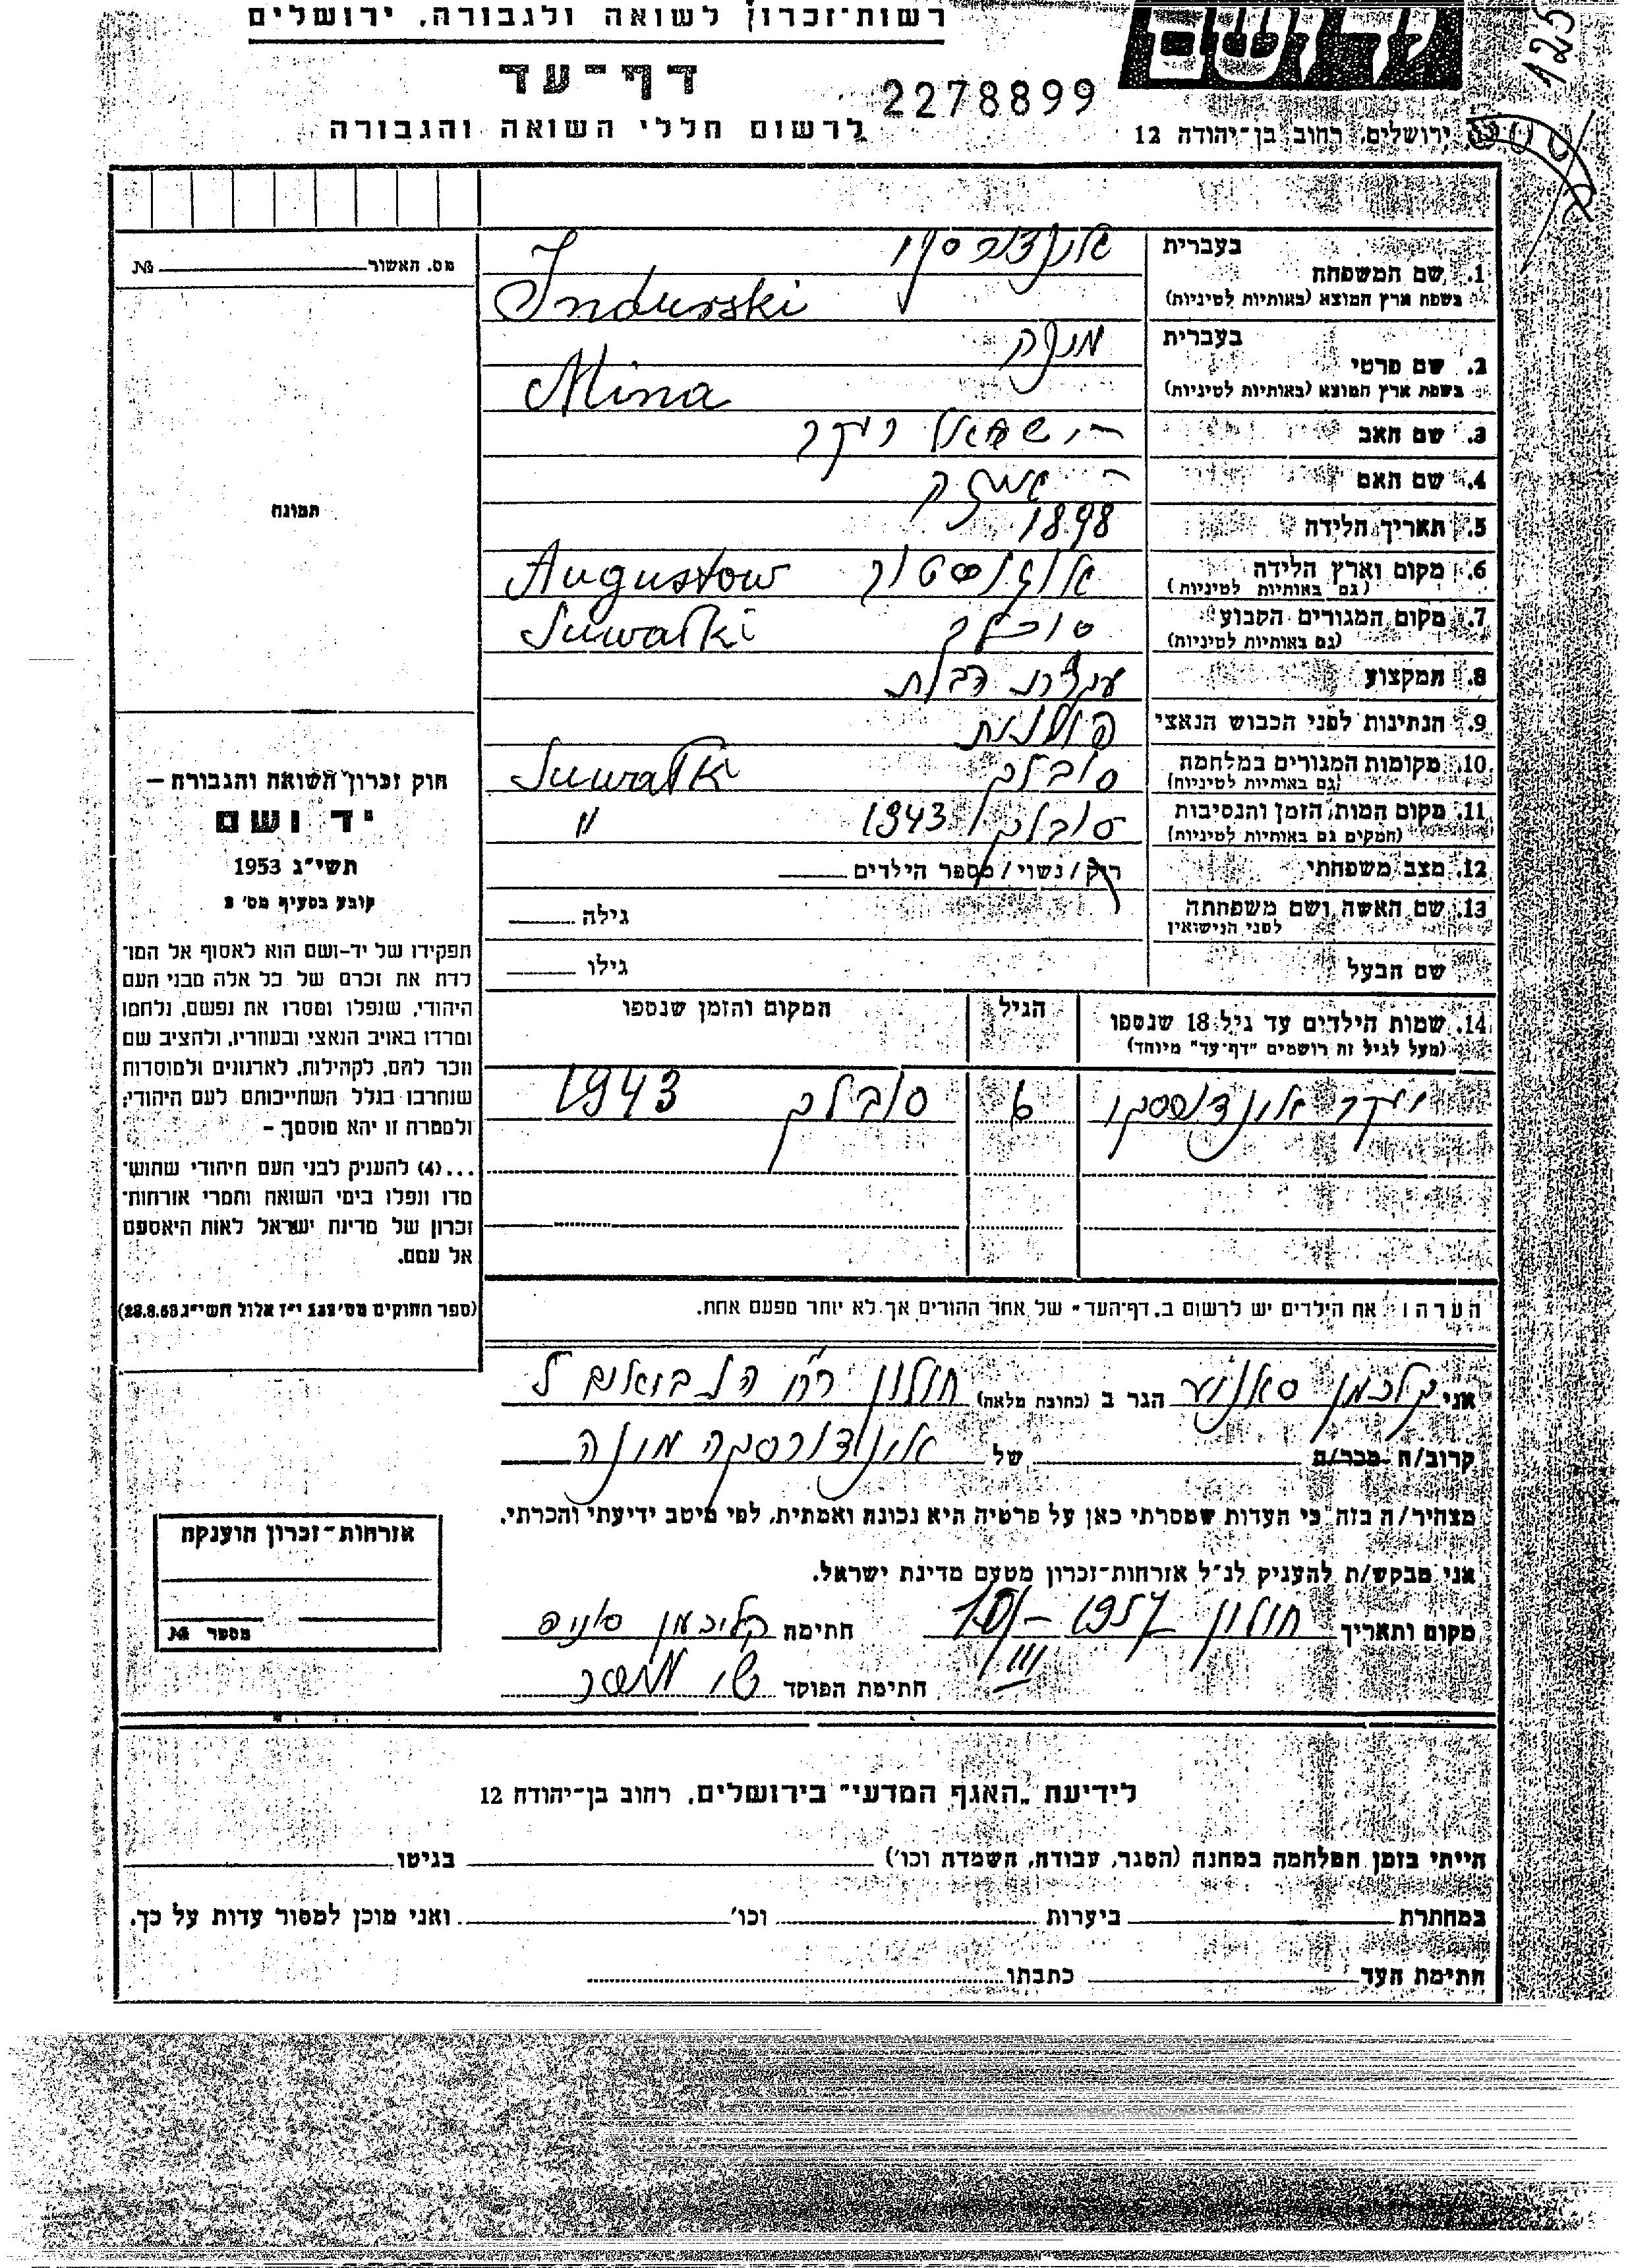 רשות־זכרון לשואה ולגבורה, ירושלים
דף־עד
2278899
לרשום חללי השואה והגבורה
ירושלים, רחוב בן־יהודה 12
125
מס. האשור № 
בעברית
1. שם המשפחה
בשפת ארץ המוצא (באותיות לטיניות) Indurski
בעברית
2. שם פרטי
בשפת ארץ המוצא (באותיות לטיניות) Mina
3. שם האב
4. שם האם
5. תאריך הלידה 1898
6. מקום וארץ הלידה אוגוסטוב Augustow
(גם באותיות לטיניות)
7. מקום המגורים הקבוע סובלק Suwałki
(גם באותיות לטיניות)
8. המקצוע עקרת הבית
9. הנתינות לפני הכבוש הנאצי פולנית
10. מקומות המגורים במלחמה סובלק Suwałk
(גם באותיות לטיניות)
11. מקום המות, הזמן והנסיבות סובלק 1943 "
(המקים גם באותיות לטיניות)
12. מצב משפחתי רוק / נשוי / מספר הילדים
13. שם האשה ושם משפחתה גילה
לפני הנישואין
שם הבעל גילו
14. שמות הילדים עד גיל 18 שנספו הגיל המקום והזמן שנספו
(מעל לגיל זה רושמים "דף־עד" מיוחד)
סובלק 1943
הערה: את הילדים יש לרשום ב"דף־העד" של אחד ההורים אך לא יותר מפעם אחת.
תמונה
חוק זכרון השואה והגבורה –
יד ושם
תשי"ג 1953
קובע בסעיף מס' 2
תפקידו של יד-ושם הוא לאסוף אל המו־
לדת את זכרם של כל אלה מבני העם
היהודי, שנפלו ומסרו את נפשם, נלחמו
ומרדו באויב הנאצי ובעוזריו, ולהציב שם
וזכר להם, לקהילות, לארגונים ולמוסדות
שנחרבו בגלל השתייכותם לעם היהודי;
ולמטרה זו יהא מוסמך –
...(4) להעניק לבני העם היהודי שהוש־
מדו ונפלו בימי השואה והמרי אזרחות־
זכרון של מדינת ישראל לאות היאספם
אל עמם.
(ספר החוקים מס' 132 י"ז אלול תשי"ג 28.8.53)
אני קלכמן הגר ב (כתובת מלאה) חולון
קרוב/ה מכר/ה של אינדורסקה מינה
מצהיר/ה בזה כי העדות שמסרתי כאן על פרטיה היא נכונה ואמתית, לפי מיטב ידיעתי והכרתי.
אני מבקש/ת להעניק לנ"ל אזרחות־זכרון מטעם מדינת ישראל.
מקום ותאריך חולון 1957 חתימה
חתימת הפוקד
אזרחות־זכרון הוענקה
מספר №
לידיעת "האגף המדעי" בירושלים, רחוב בן־יהודה 12
הייתי בזמן המלחמה במחנה (הסגר, עבודה, השמדה וכו') בגיטו
במחתרת ביערות וכו' ואני מוכן למסור עדות על כך.
חתימת העד כתבתו